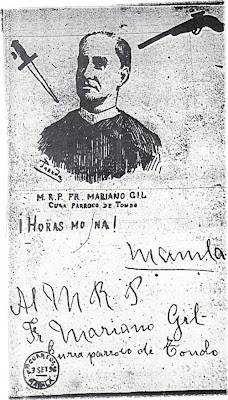 M.R.P. FR. MARIANO GIL
CURA PÁRROCO DE TONDO
¡HORAS MO NA!
Manila
Al M R P
Fr Mariano Gil-
Curia parroco de Tondo
CORREOS
MANILA